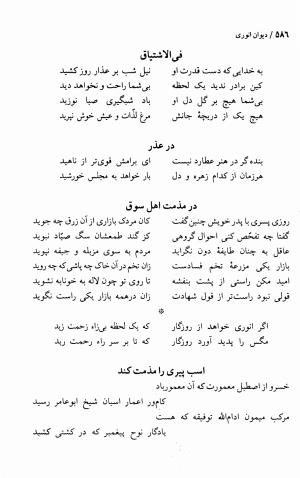 ۵۸۶ / دیوان انوری
فی‌الاشتیاق
به خدایی که دست قدرت او نیل شب بر عذار روز کشید
کین برادر ندید یک لحظه بی‌شما راحت و نخواهد دید
بی‌شما هیچ بر گل دل او باد شبگیری صبا نوزید
هیچ یک از دریچهٔ جانش مرغ لذّات و عیش خوش نپرید
در عذر
بنده گر در هنر عطارد نیست ای برامش قوی‌تر از ناهید
هرزمان از کدام زهره و دل بار خواهد به مجلس خورشید
در مذمت اهل سوق
روزی پسری با پدر خویش چنین گفت کان مردک بازاری از آن زرق چه جوید
گفتا چه تفحّص کنی احوال گروهی کز گند طمعشان سگ صیّاد نبوید
عاقل به چنان طایفهٔ دون نگراید مردم به سوی مزبله و جیفه نپوید
بازار یکی مزرعهٔ تخم فسادست زان تخم در آن خاک چه پاشی که چه روید
امید مکن راستی از پشت بنفشه تا روی تو چون لاله به خونابه نشوید
قولی نبود راست‌تر از قول شهادت زان درهمه بازار یکی راست نگوید
*
اگر انوری خواهد از روزگار که یک لحظه بی‌زاء زحمت زید
مگس را پدید آورد روزگار که تا بر سر راء رحمت رید
اسب پیری را مذمت کند
خسرو از اصطبل معمورت که آن معمورباد
کام‌ور اعمار اسبان شیخ ابوعامر رسید
مرکب میمون ادام‌الله توفیقه که هست
یادگار نوح پیغمبر که در کشتی کشید